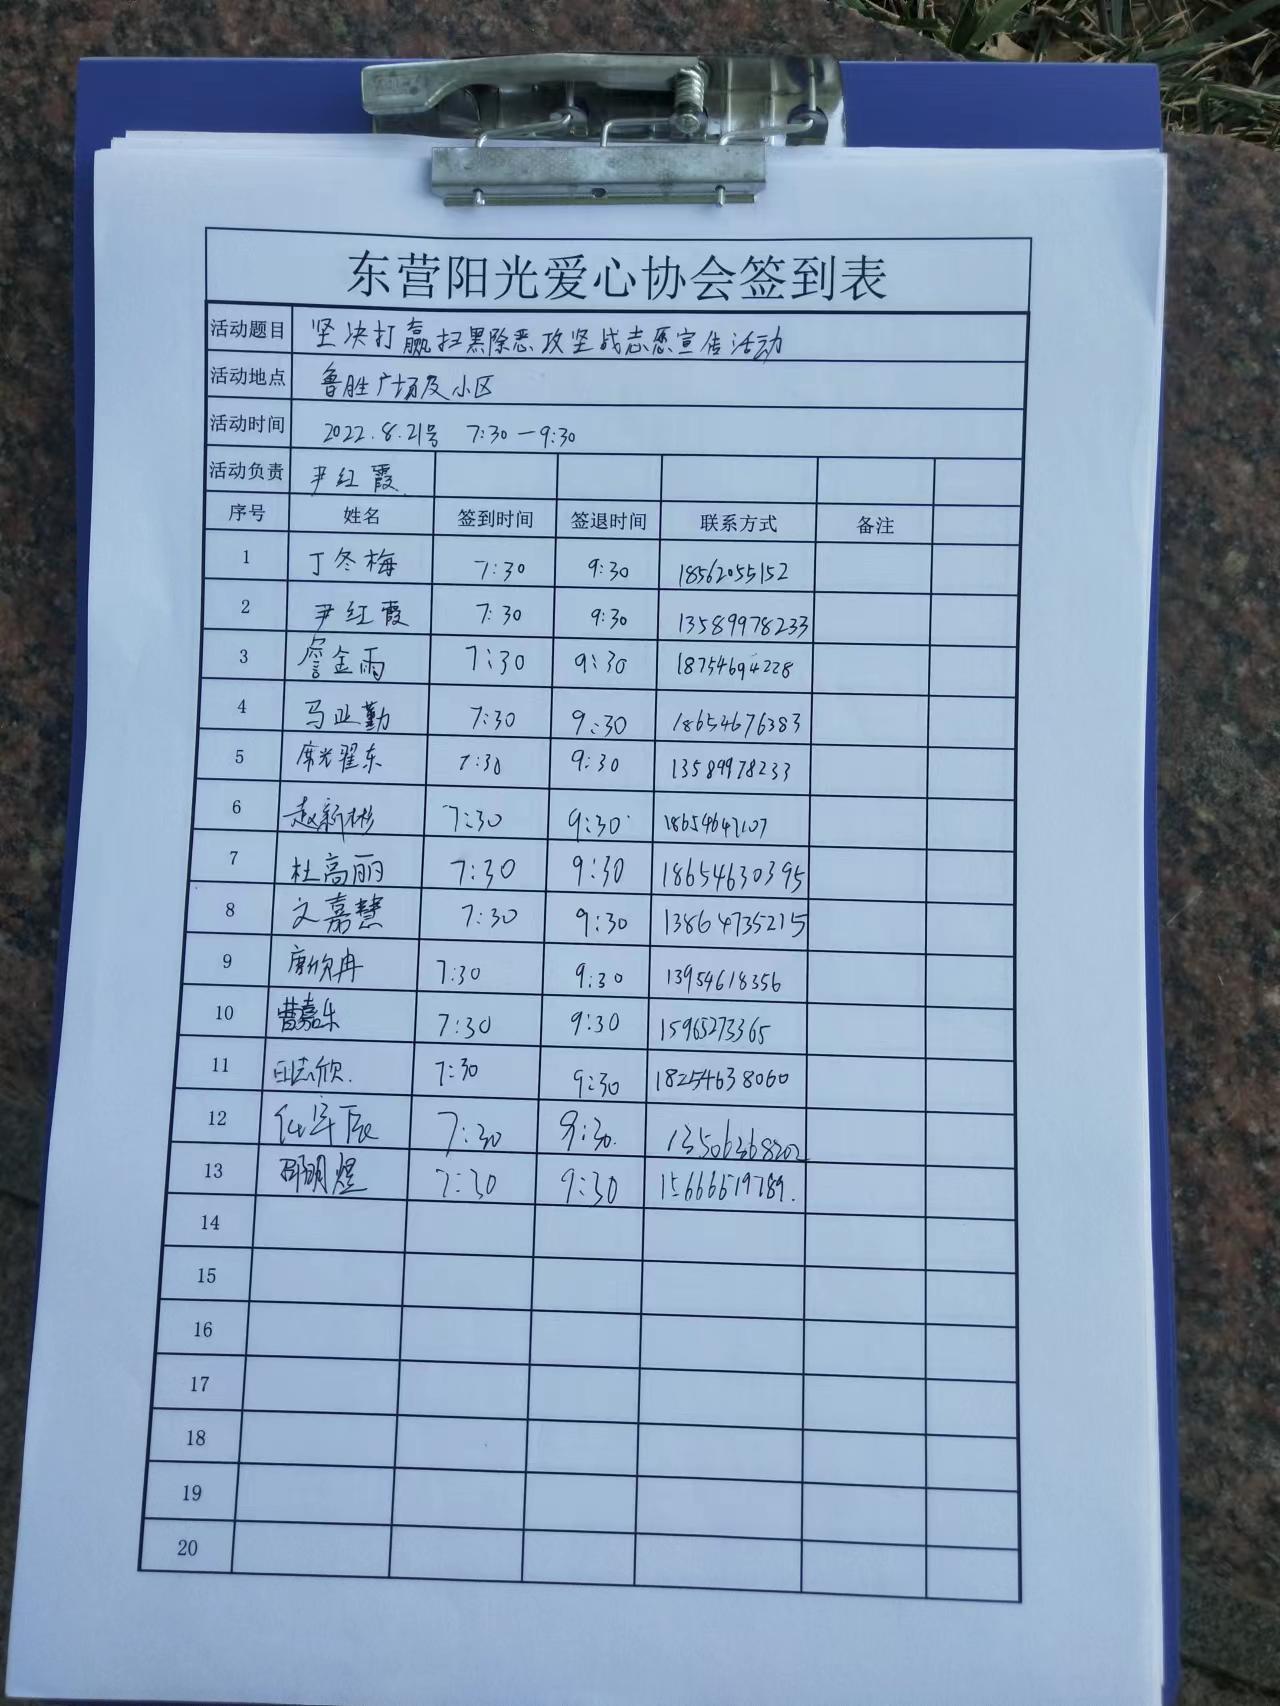 东营阳光爱心协会签到表
活动题目 坚决打赢扫黑除恶攻坚战志愿宣传活动
活动地点 鲁胜广场及小区
活动时间 2022.8.21号 7:30-9:30
活动负责 尹红霞
序号 姓名 签到时间 签退时间 联系方式 备注
1 丁冬梅 7:30 9:30 18562055152
2 尹红霞 7:30 9:30 13589978233
3 詹金雨 7:30 9:30 18754694228
4 马正勤 7:30 9:30 18654676383
5 7:30 9:30 13589978233
6 赵新彬 7:30 9:30 18654647107
7 杜高丽 7:30 9:30 18654630395
8 文嘉慧 7:30 9:30 13864735215
9 唐欣冉 7:30 9:30 13954618356
10 曹嘉乐 7:30 9:30 15965273365
11 7:30 9:30 18254638060
12 7:30 9:30 13506368202
13 邵明煜 7:30 9:30 15666619789.
14
15
16
17
18
19
20